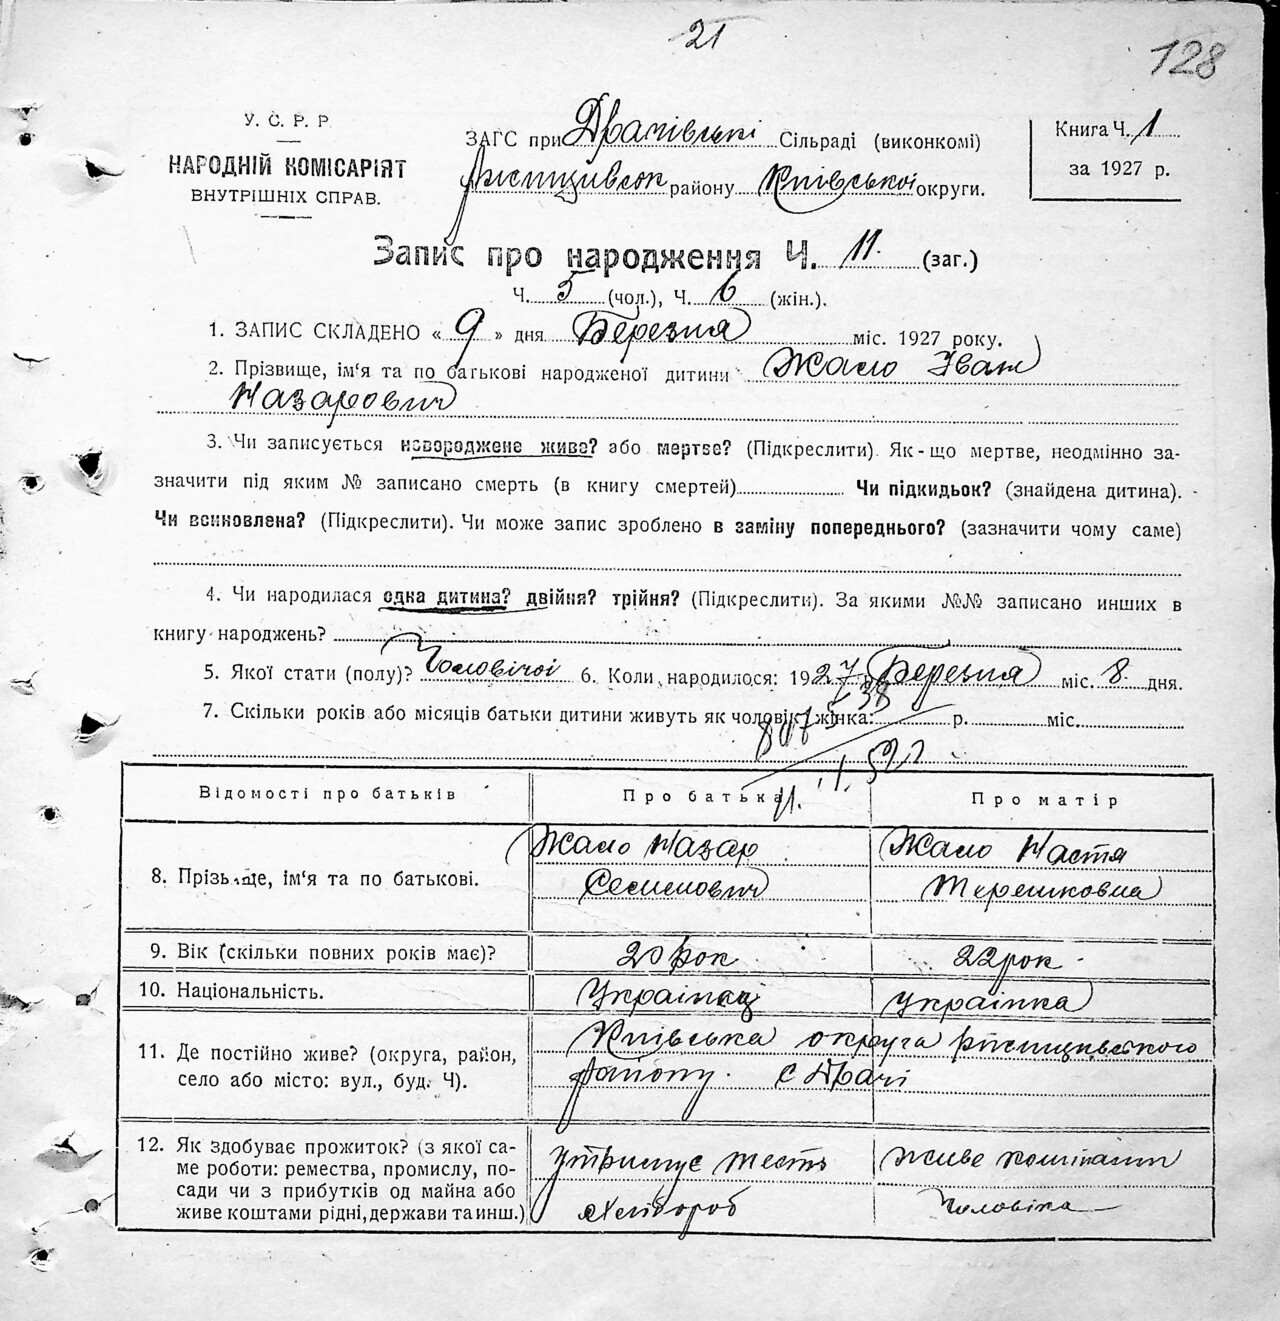 21
128
У. С. Р. Р.
НАРОДНІЙ КОМІСАРІЯТ
ВНУТРІШНІХ СПРАВ.
ЗАГС при Драчівські Сільраді (виконкомі)
району Київської округи.
Книга Ч. 1
за 1927 р.
Запис про народження Ч. 11. (заг.)
Ч. 5 (чол.), Ч. 6 (жін.).
1. ЗАПИС СКЛАДЕНО « 9 » дня Березня міс. 1927 року.
2. Прізвище, ім‘я та по батькові народженої дитини Жало Іван
Назарович
3. Чи записується новороджене живе? або мертве? (Підкреслити). Як-що мертве, неодмінно за-
значити під яким № записано смерть (в книгу смертей) Чи підкидьок? (знайдена дитина).
Чи всиновлена? (Підкреслити). Чи може запис зроблено в заміну попереднього? (зазначити чому саме)
4. Чи народилася одна дитина? двійня? трійня? (Підкреслити). За якими №№ записано инших в
книгу народжень?
5. Якої стати (полу)? Чоловічої 6. Коли народилося: 1927 р. Березня міс. 8. дня.
7. Скільки років або місяців батьки дитини живуть як чоловік і жінка: р. міс.
Відомості про батьків Про батька Про матір
8. Прізвище, ім‘я та по батькові. Жало Назар Жало Настя
Семенович Терешковна
9. Вік (скільки повних років має)? 20 рок 22 рок
10. Національність. Українці українка
11. Де постійно живе? (округа, район, Київська округа
село або місто: вул., буд. Ч). району. с Драчі
12. Як здобуває прожиток? (з якої са-
ме роботи: ремества, промислу, по- Утримує тесть живе коштами
сади чи з прибутків од майна або
живе коштами рідні, держави та инш.) хлібороб чоловіка